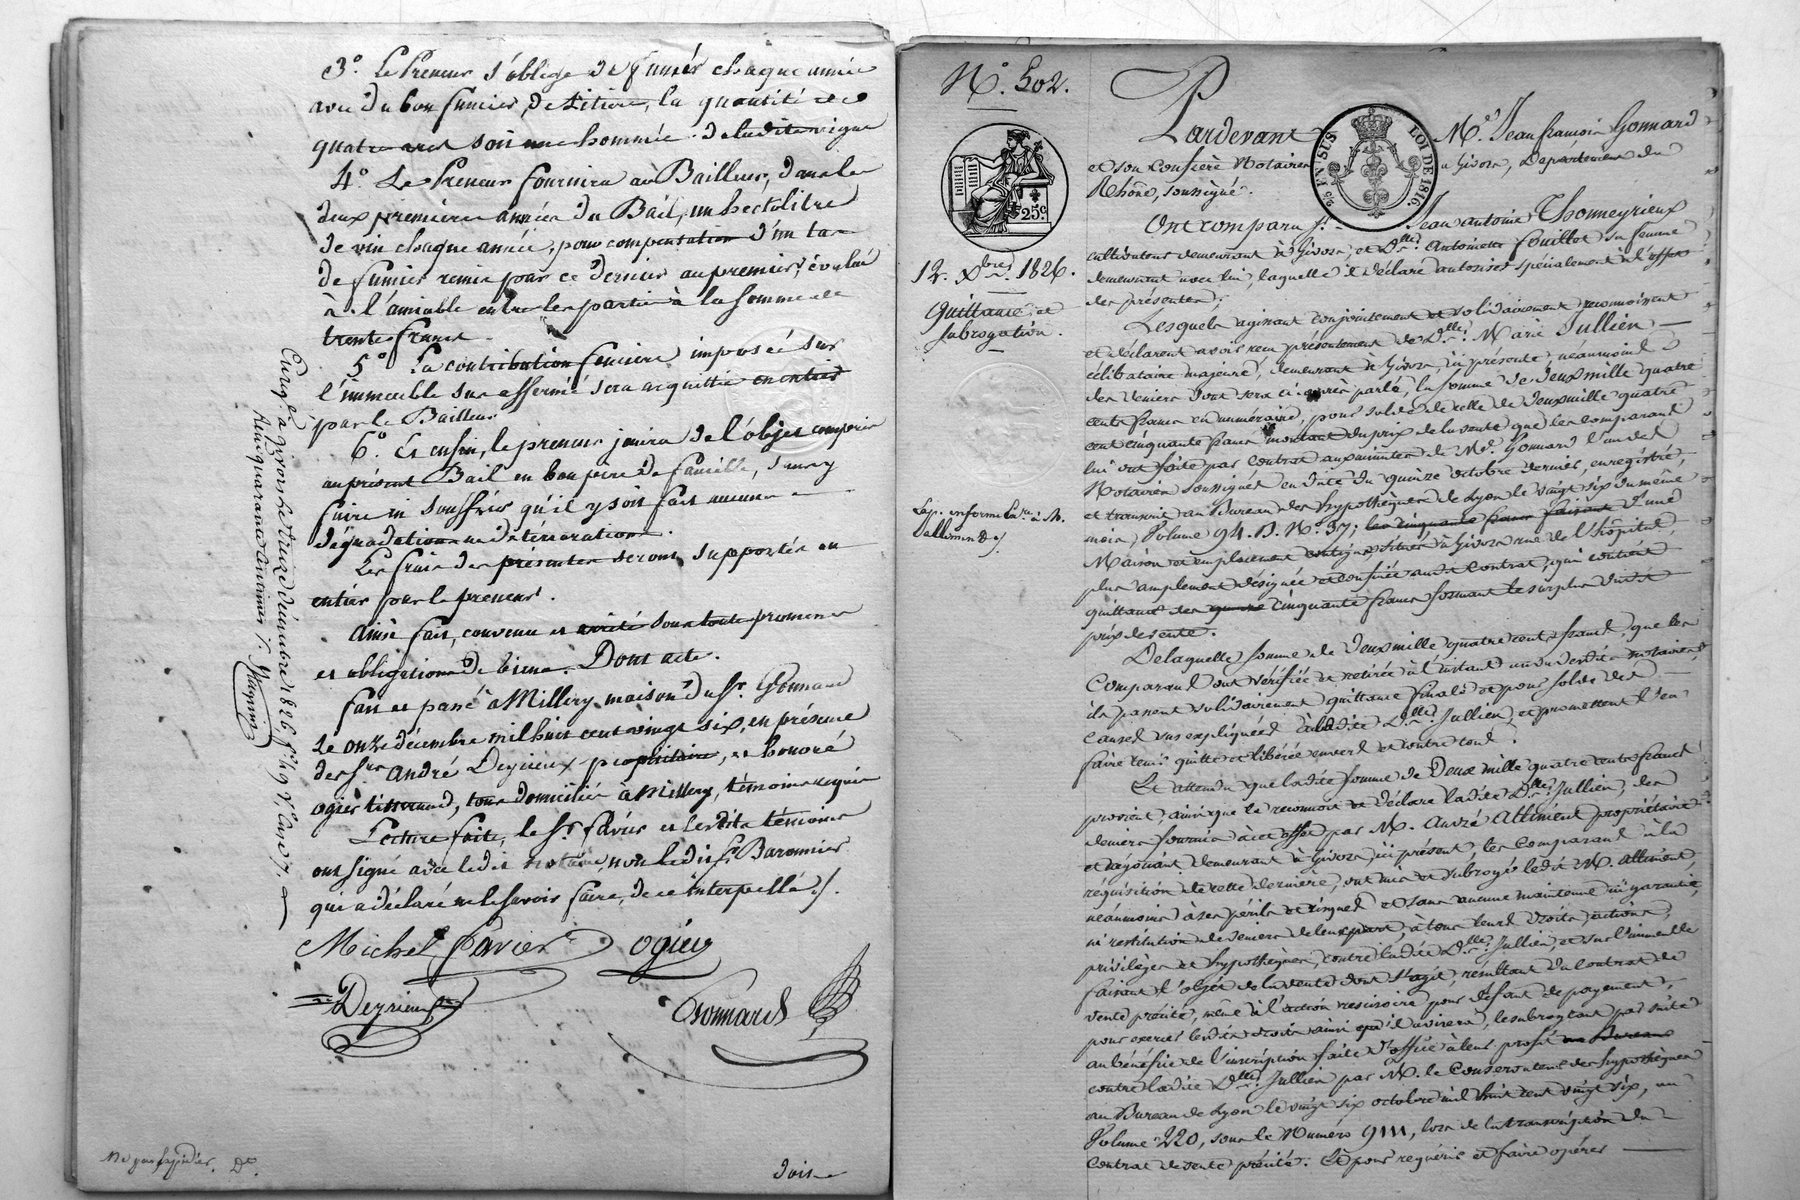 3.° Le Preneur s'oblige de fumer chaque année
avec du bon fumier de litière, la quantité de
quatre ares soit une hommée de ladite vigne
4.° Le Preneur fournira au Bailleur, dans les
deux premières années du Bail, un hectolitre
de vin chaque année, pour compensation d'un tas
de fumier remis par ce dernier au premier, évalué
à l'amiable entre les parties à la somme de
trente francs.
5.° La contribution foncière imposée sur
l'immeuble sus affermé sera acquittée en entier
par le Bailleur
6.° Et enfin, le preneur jouira de l'objet compris
au présent Bail en bon père de famille, sans y
faire ni souffrir qu'il y soit fait aucune
dégradation ni détérioration.
Les frais des présentes seront supportés en
entier par le preneur.
Ainsi fait, convenu et arrêté sous toute promesse
et obligation de biens. Dont acte.
Fait et passé à Millery, maison du Sr. Gonnard
Le onze décembre mil huit cent vingt six, en présence
des Srs. André Deyrieux propriétaire, et honoré
Ogier tisserand, tous domiciliés à Millery, témoins requis
Lecture faite, le Sr. Favier et lesdits témoins
ont signé avec ledit notaire, non ledit Sr. Baronnier
qui a déclaré ne le savoir faire, de ce interpellé ./.
Michel Favier ogier
Deyrieux Gonnard
Enregé. à Givors le treize décembre 1826 f.° 49
dois
N.° 502.
25c
12. Xbre. 1826.
Quittance et
subrogation.
Pardevant Me. Jean françois Gonnard
et son Confrère Notaires à Givors, Département du
Rhône, soussignés.
25 C EN SUS
LOI DE 1816
Ont comparu Sr. Jean antoine Thomeyrieux
cultivateur demeurant à Givors, et Dlle. Antoinette Fouillot sa femme
demeurant avec lui, laquelle il déclare autoriser spécialement à l'effet
des présentes.
Lesquels agissant conjointement et solidairement reconnoissent
et déclarent avoir reçu présentement de Dlle. Marie Jullien
célibataire majeure, demeurant à Givors, ici présente, néanmoins
des deniers dont sera ci après parlé, la somme de deux mille quatre
cents francs en numéraire, pour solde de celle de deux mille quatre
cent cinquante francs montant du prix de la vente que les comparans
lui ont faite par contrat aux minutes de Me. Gonnard l'un des
Notaires soussignés en date du quinze octobre dernier, enregistré,
et transcrit au Bureau des hypothèques de Lyon le vingt six du même
mois, Volume 94. B. N.° 37; d'une
Maison et emplacement contigus situés à Givors rue de l'hôpital,
plus amplement désignés et confinés audit Contrat, qui contient
quittance des cinquante francs formant le surplus dudit
prix de vente.
De laquelle somme de deux mille quatre cents francs, que les
Comparans ont vérifiée et retirée à l'instant au vu desdits notaires,
ils passent solidairement quittance finale et pour solde des
causes sus expliquées à ladite Dlle. Jullien, et promettent l'en
faire tenir quitte et libérée envers et contre tous.
Et attendu que ladite somme de Deux mille quatre cents francs
provient, ainsi que le reconnoit et déclare ladite Dlle. Jullien, des
deniers fournis à cet effet par M. André Alliment propriétaire
demeurant à Givors, ici présent, les Comparans à la
réquisition de cette dernière, ont mis et subrogé ledit M. Alliment,
néanmoins à ses périls et risques et sans aucune maintenue ni garantie,
ni restitution de deniers de leur part, à tous leurs droits, actions,
privilèges et hypothèques, contre ladite Dlle. Jullien, et sur l'immeuble
faisant l'objet de la vente dont s'agit, résultant du Contrat de
vente précité, même à l'action résolutoire pour défaut de payement,
pour exercer lesdits droits ainsi qu'il avisera, le subrogeant par suite
au bénéfice de l'inscription faite d'office à leur profit
contre ladite Dlle. Jullien par M. le Conservateur des hypothèques
au Bureau de Lyon le vingt six octobre mil huit cent vingt six, au
Volume 220, sous le Numéro 9111, lors de la transcription du
Contrat de vente précité. Et pour requérir et faire opérer